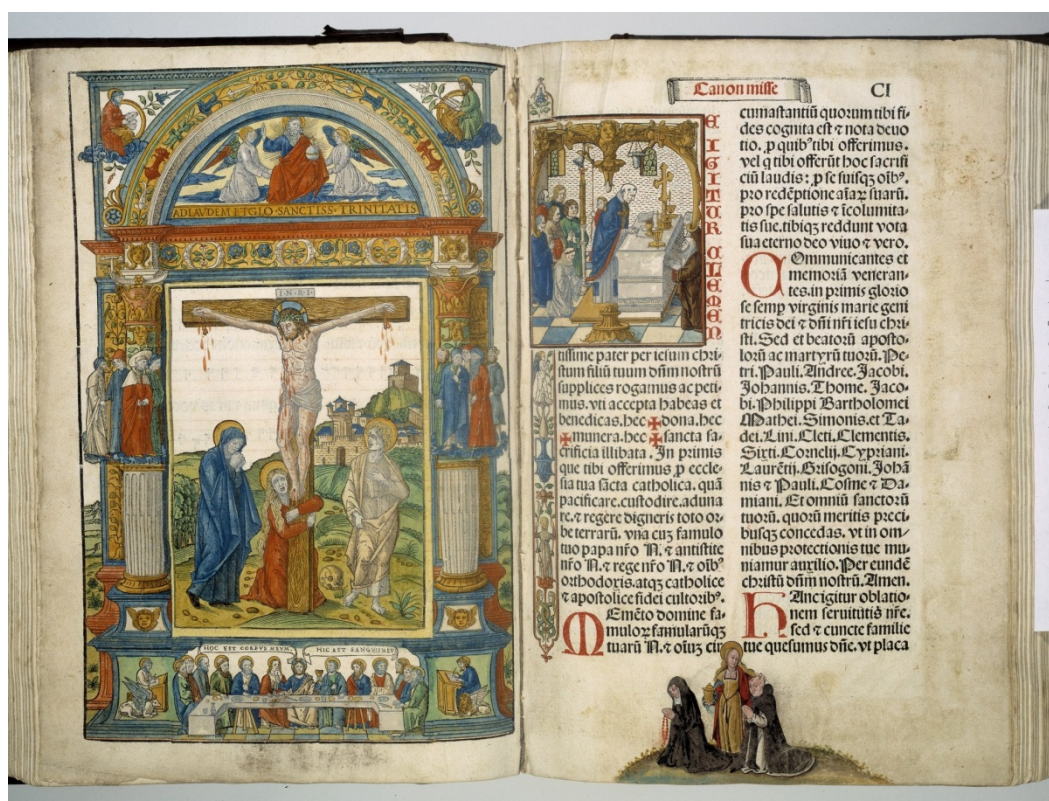 AD LAVDEM ET GLO SANCTISS TRINITATIS
I N R I
HOC EST CORPVS MEVM
HIC EST SANGVIS MEV
Canon misse
CI
E IGITUR CLEMEN
tissime pater per iesum chri⸗
stum filiū tuum dn̄m nostrū
supplices rogamus ac peti
mus. vti accepta habeas et
benedicas. hec ✠ dona. hec
✠ munera. hec ✠ sancta sa⸗
crificia illibata. In primis
que tibi offerimus ꝓ eccle⸗
sia tua sācta catholica. quā
pacificare. custodire. aduna
re. ⁊ regere digneris toto or⸗
be terrarū. vna cuꝫ famulo
tuo papa nr̄o N. ⁊ antistite
nr̄o N. ⁊ rege nr̄o N. ⁊ oīb⁹
orthodoxis. atqꝫ catholice
⁊ apostolice fidei cultorib⁹.
MEmēto domine fa⸗
muloꝝ famularūqꝫ
tuarū N. ⁊ oīuꝫ cir
cumastantiū quorum tibi fi⸗
des cognita est ⁊ nota deuo
tio. ꝓ quib⁹ tibi offerimus.
vel q tibi offerūt hoc sacrifi
ciū laudis: ꝓ se suisqꝫ oīb⁹.
pro redēptione aīaꝝ suarū.
pro spe salutis ⁊ īcolumita⸗
tis sue. tibiqꝫ reddunt vota
sua eterno deo viuo ⁊ vero.
COmmunicantes et
memoriā veneran⸗
tes. in primis glorio
se semꝑ virginis marie geni
tricis dei ⁊ dn̄i nr̄i iesu chri⸗
sti. Sed et beatorū aposto⸗
lorū ac martyrū tuorū. Pe⸗
tri. Pauli. Andree. Jacobi.
Johannis. Thome. Jaco⸗
bi. Philippi Bartholomei
Mathei. Simonis. et Ta⸗
dei. Lini. Cleti. Clementis.
Sixti. Cornelij. Cypriani.
Laurētij. Grisogoni. Johā
nis ⁊ Pauli. Cosme ⁊ Da⸗
miani. Et omniū sanctorū
tuorū. quorū meritis preci⸗
busqꝫ concedas. vt in om⸗
nibus protectionis tue mu⸗
niamur auxilio. Per eundē
christū dn̄m nostrū. Amen.
HAnc igitur oblatio⸗
nem seruitutis nr̄e.
sed ⁊ cuncte familie
tue quesumus dn̄e. vt placa